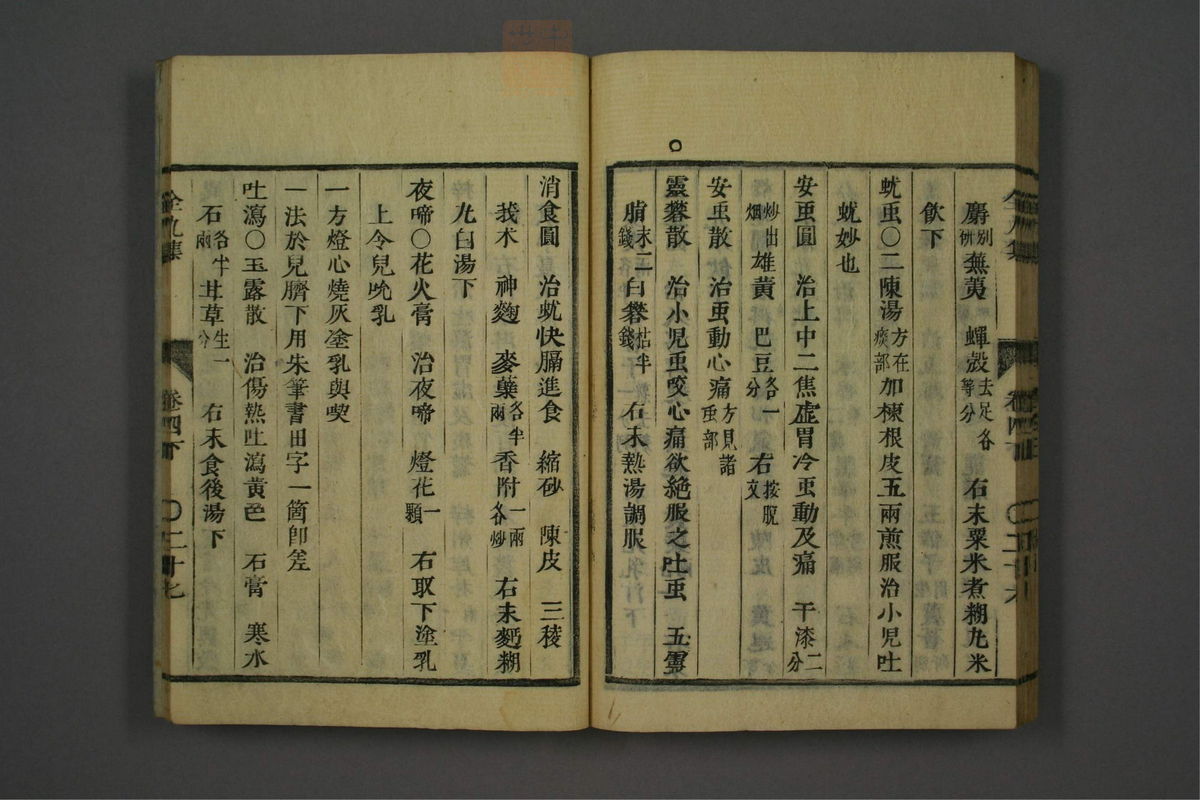 麝別研蕪荑　蟬殼去足各等分　右末粟米煮糊丸米
飲下
蚘虫○二陳湯方在痰部加楝根皮五兩煎服治小児吐
蚘妙也
安䖝圓　治上中二焦虛胃冷䖝動及痛　干漆二分
炒出烟雄黃　巴豆各一分　右
安䖝散　治䖝動心痛方見諸䖝部
靈礬散　治小児䖝咬心痛欲絶服之吐䖝　五靈
脂末二錢白礬枯半錢　右末熱湯調服
消食圓　治蚘快膈進食　縮砂　陳皮　三稜
莪朮　神麹　麥蘖各半兩香附一兩各炒　右末麪糊
丸白湯下
夜啼○花火膏　治夜啼　燈花一顆　右取下塗乳
上令兒吮乳
一方燈心燒灰塗乳與喫
一法於兒臍下用朱筆書田字一箇卽差
吐瀉○玉露散　治傷熱吐瀉黃色　石膏　寒水
石各半兩甘草生一分　右末食後湯下
全九集
卷四下
○二十七